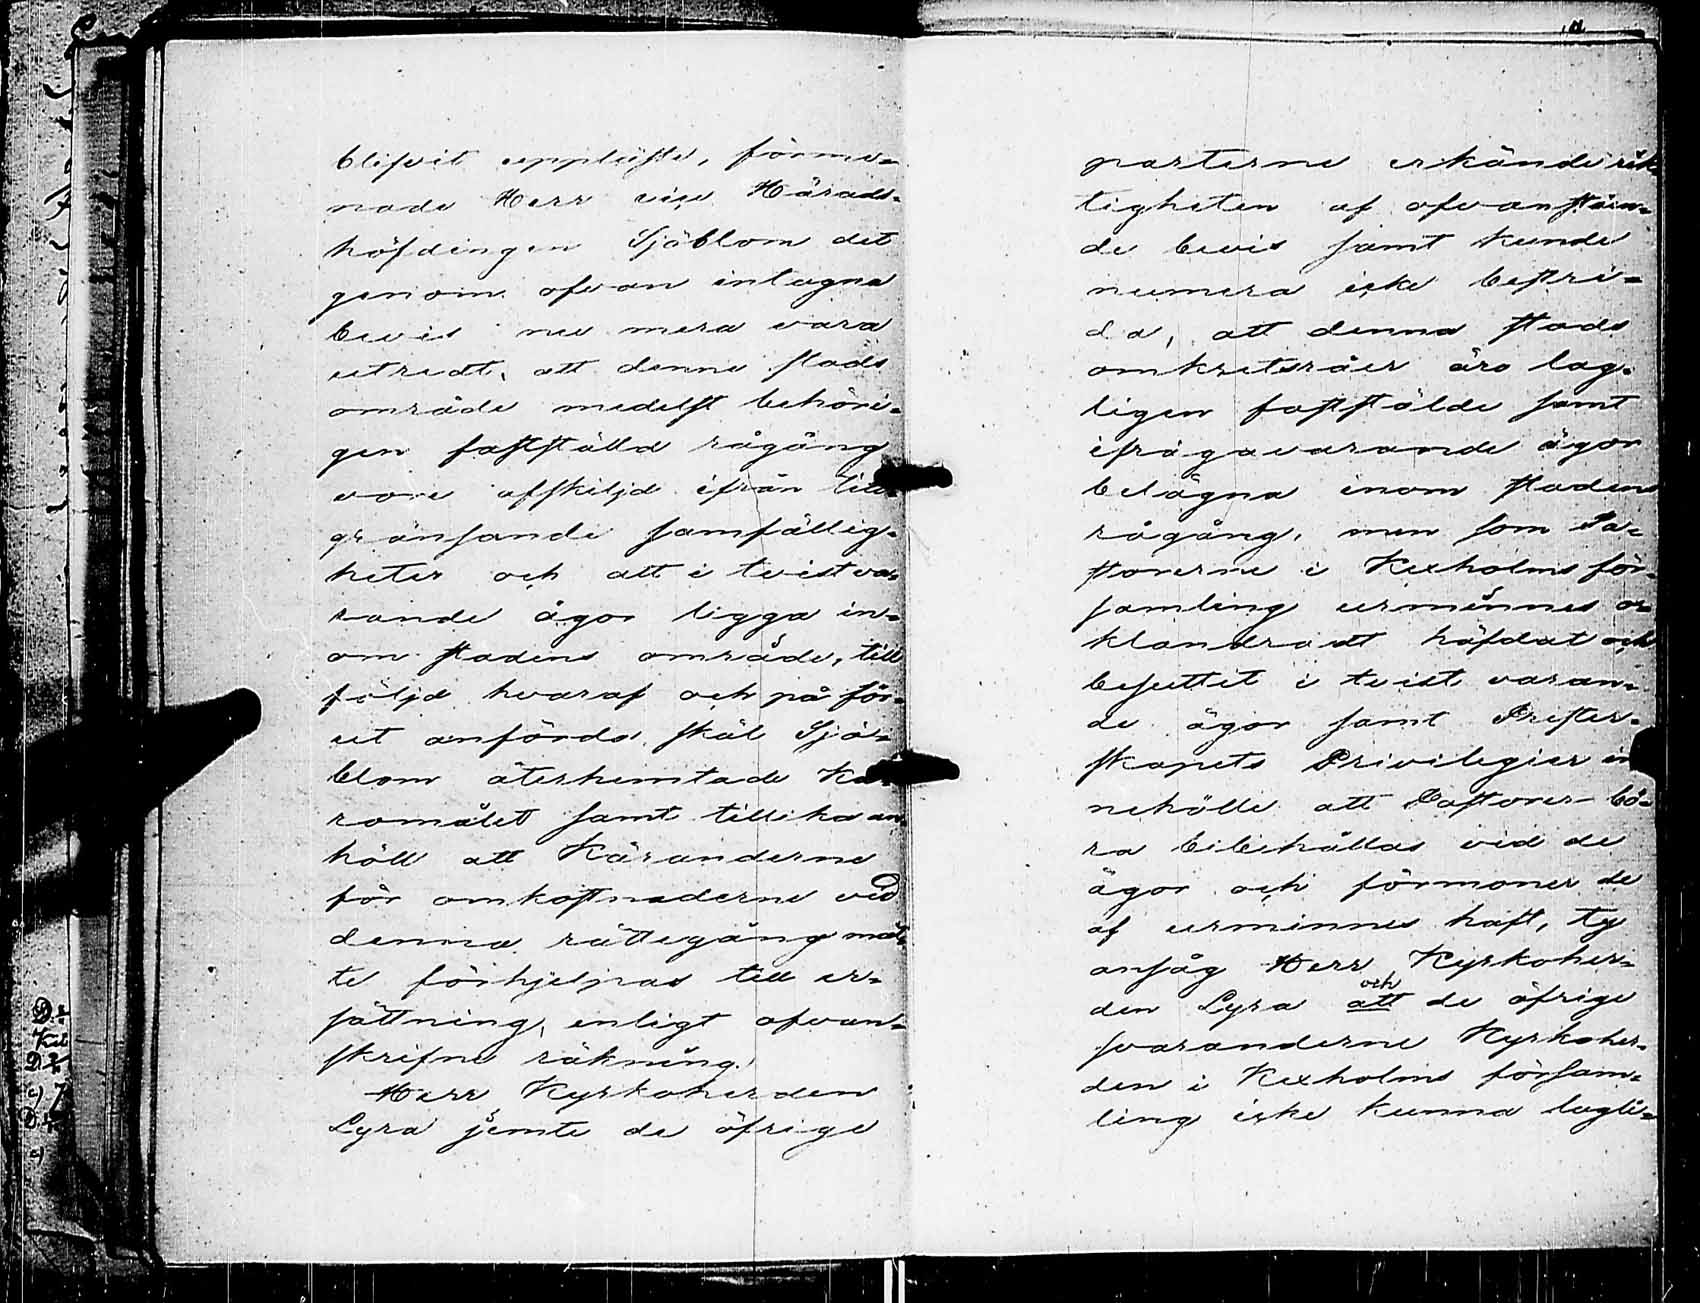 blifvit uppläste, förme-
nade Herr vice Härads-
höfdingen Sjöblom det
genom ofvan intagna
bevis nu mera vara
utredt, att denna stads
område medelst behöri-
gen fastställd rågång
vore afskiljd ifrån till
gränsande samfällig-
heter och att i tvist va-
rande ägor ligga in-
om stadens område, till
följd hvaraf och på för-
ut anförda skäl Sjö-
blom återhemtade Kä-
romålet samt tillika an
höll att Käranderne
för omkostnaderne vid
denna rättegång måt-
te förhjelpas till er-
sättning, enligt ofvan-
skrifne räkning.
Herr Kyrkoherden
Lyra jemte de öfrige
parterne erkände rik
tigheten af ofvanståen-
de bevis samt kunde
numera icke bestri-
da, att denna stads
omkretsråer äro lag-
ligen fastställde samt
ifrågavarande ägor
belägna inom stadens
rågång, men som Pa-
storerne i Kexholms för-
samling urminnes o-
klandradt häfdat och
besuttit i tvist varan-
de ägor samt Prester-
skapets Privilegier in
nehölle att Pastorer bö-
ra bibehållas vid de
ägor och förmoner de
af urminnes haft, ty
ansåg Herr Kyrkoher-
den Lyra att och de öfrige
svaranderne Kyrkoher-
den i Kexholms försam-
ling icke kunna lagli-